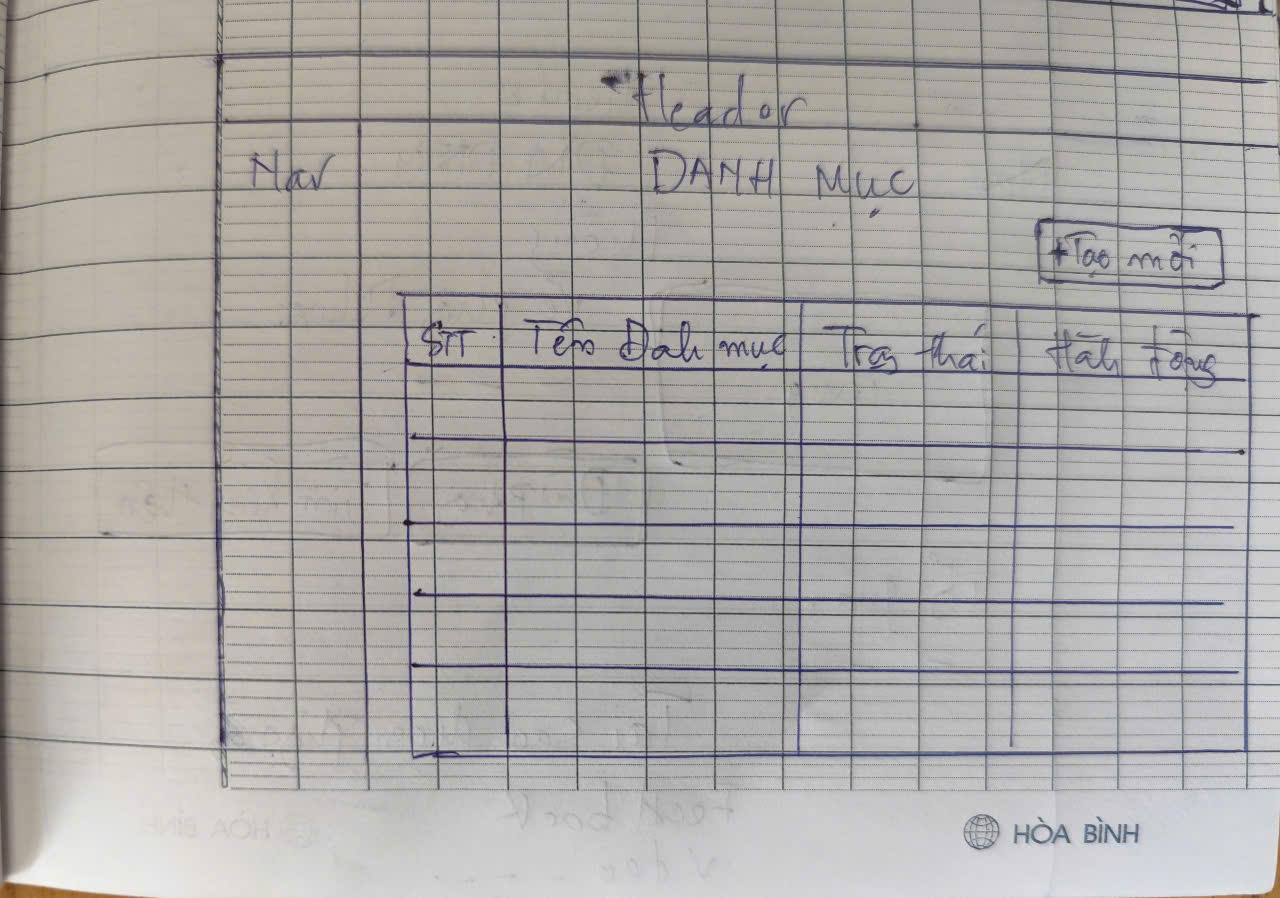 Header
Nav
DANH MỤC
+Tạo mới
STT Tên Danh mục Trạng thái Hành động
HÒA BÌNH